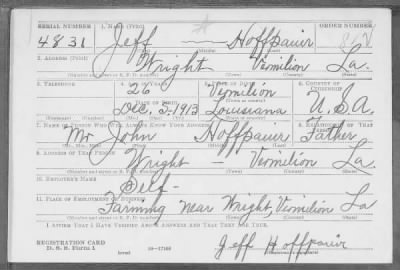 SERIAL NUMBER 1. NAME (Print) ORDER NUMBER
4831 Jeff — Hoffpauir
(First) (Middle) (Last)
2. ADDRESS (Print)
Wright Vermilion La.
3. TELEPHONE 4. AGE IN YEARS 5. PLACE OF BIRTH 6. COUNTRY OF CITIZENSHIP
Vermilion
DATE OF BIRTH (Town or county)
Dec. 5-1913 Louisiana U.S.A.
7. NAME OF PERSON WHO WILL ALWAYS KNOW YOUR ADDRESS 8. RELATIONSHIP OF THAT PERSON
Mr John Hoffpauir Father
(Mr., Mrs., Miss) (First) (Middle) (Last)
9. ADDRESS OF THAT PERSON
Wright — Vermilion La.
10. EMPLOYER'S NAME
Self-
11. PLACE OF EMPLOYMENT OR BUSINESS
Farming near Wright, Vermilion La
I AFFIRM THAT I HAVE VERIFIED ABOVE ANSWERS AND THAT THEY ARE TRUE.
REGISTRATION CARD
D. S. S. Form 1
(over)
Jeff Hoffpauir